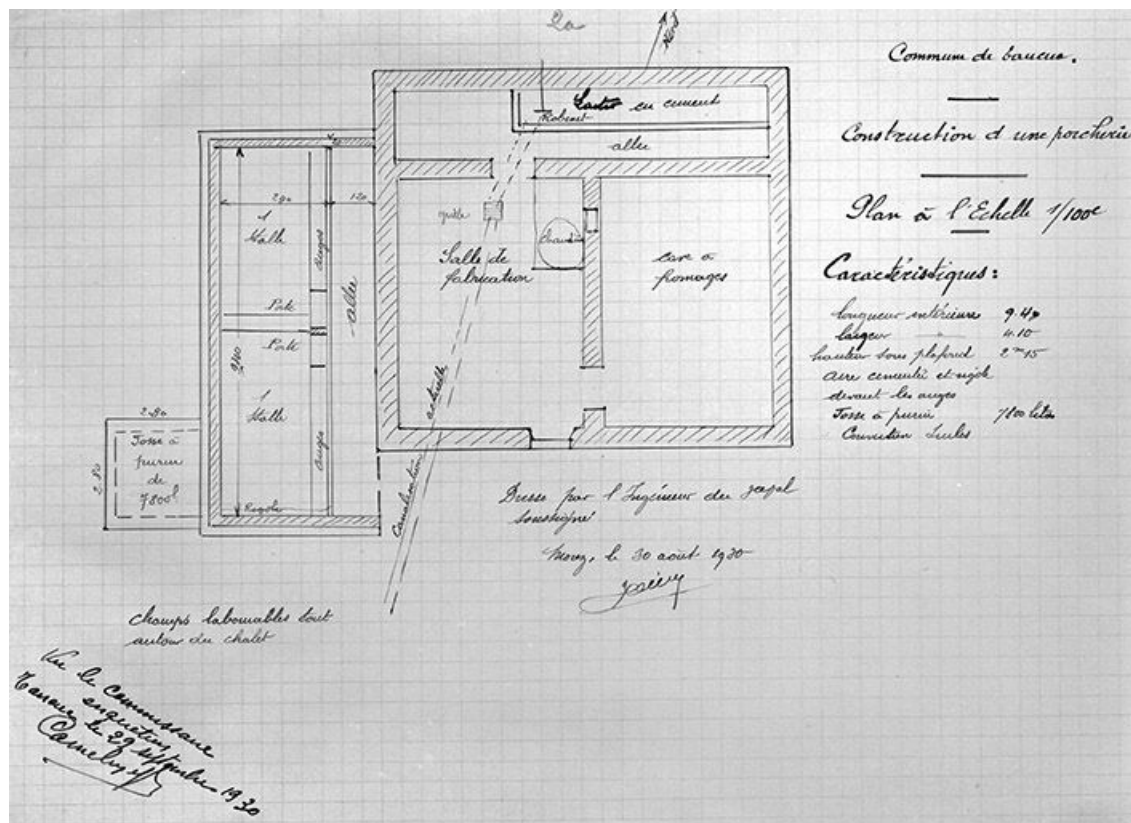 2a
Nord
Commune de
Construction d une porcherie
Plan à l'Echelle 1/100e
Caractéristiques :
longueur intérieure 9.40
largeur — 4.10
hauteur sous plafond 2m15
aire cimentée et rigole
devant les auges
Fosse à purin 7800 litres
Couverture tuiles
en ciment
Robinet
allée
grille
Chaudière
Salle de
fabrication
cave à
fromages
290
120
1
Stalle
auges
allée
Porte
Porte
940
1
Stalle
auges
Rigole
2.80
2.80
Fosse à
purin
de
7800l
Canalisation actuelle
Dressé par l'Ingénieur du
soussigné
Morez, le 30 août 1930
champs labourables tout
autour du chalet
Vu le commissaire
enquêteur
le 29 septembre 1930